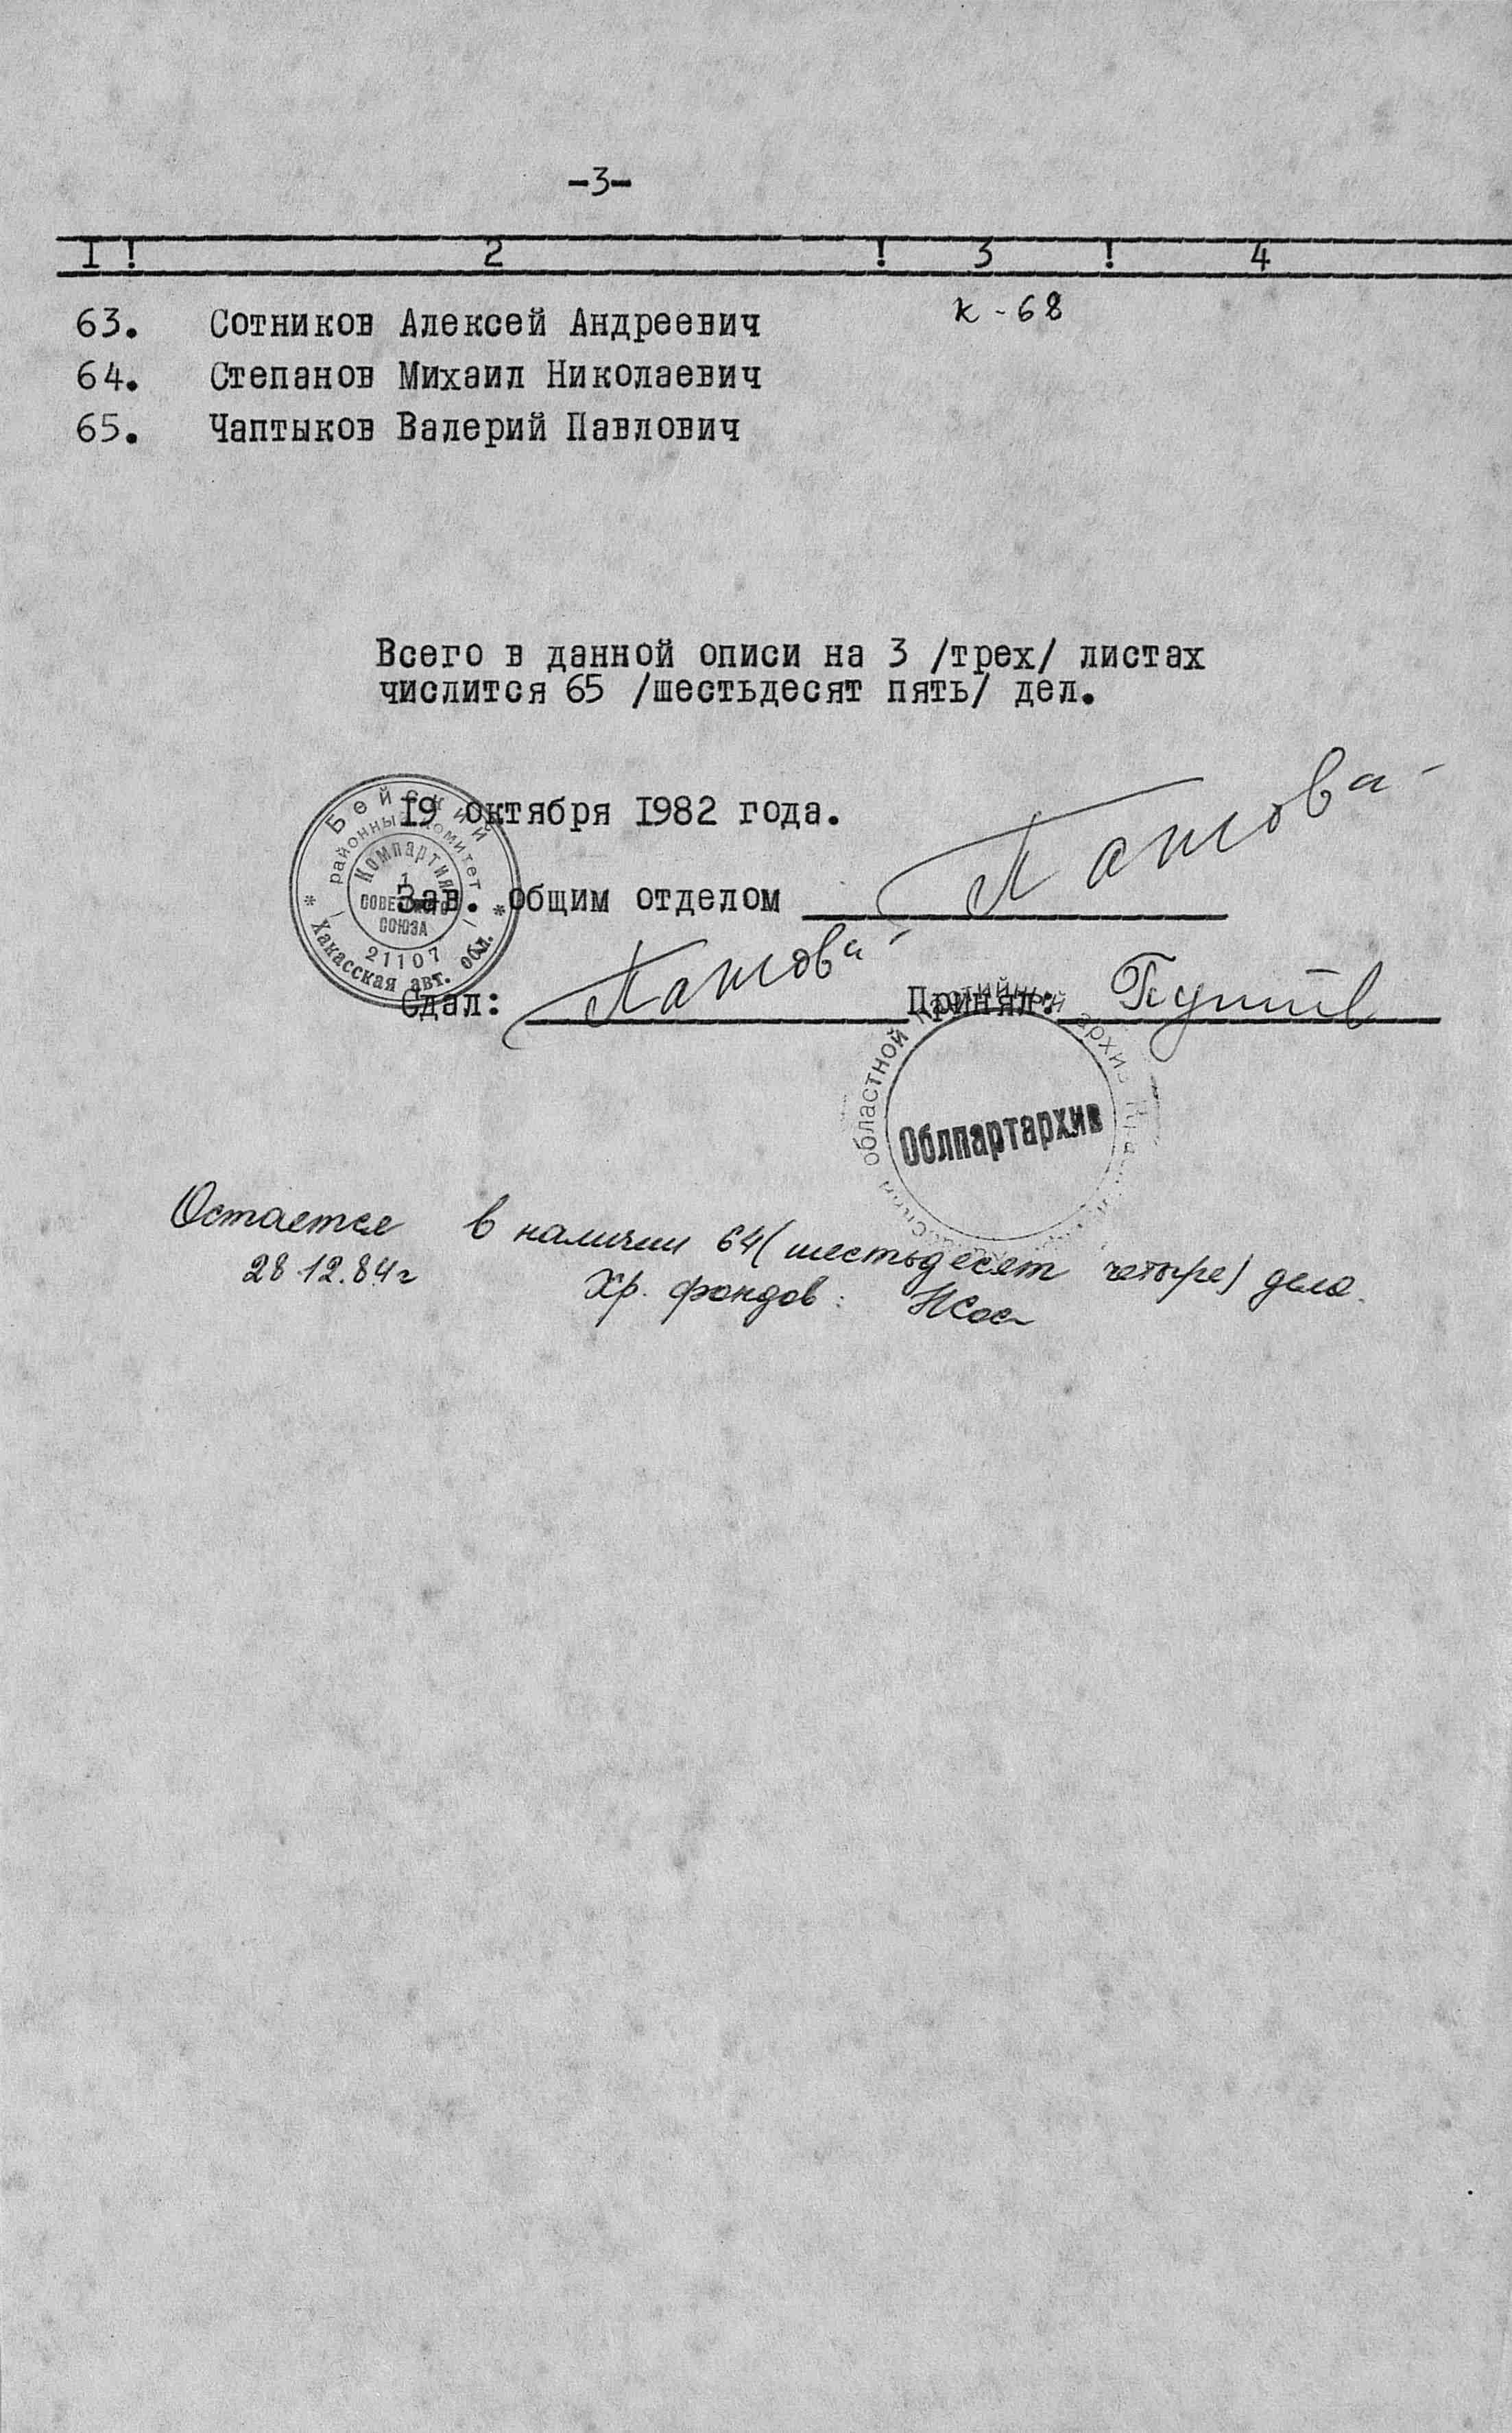 -3-
I ! 2 ! 3 ! 4
63. Сотников Алексей Андреевич к-68
64. Степанов Михаил Николаевич
65. Чаптыков Валерий Павлович
Всего в данной описи на 3 /трех/ листах
числится 65 /шестьдесят пять/ дел.
19 октября 1982 года.
Зав. общим отделом
Сдал: Принял:
Бейский
районный комитет
Компартия
1
СОВЕТСКОГО
СОЮЗА
21107
* Хакасская авт. обл. *
областной партийный архив
Облпартархив
Остается в наличии 64 (шестьдесят четыре) дела.
28.12.84г Хр. фондов: